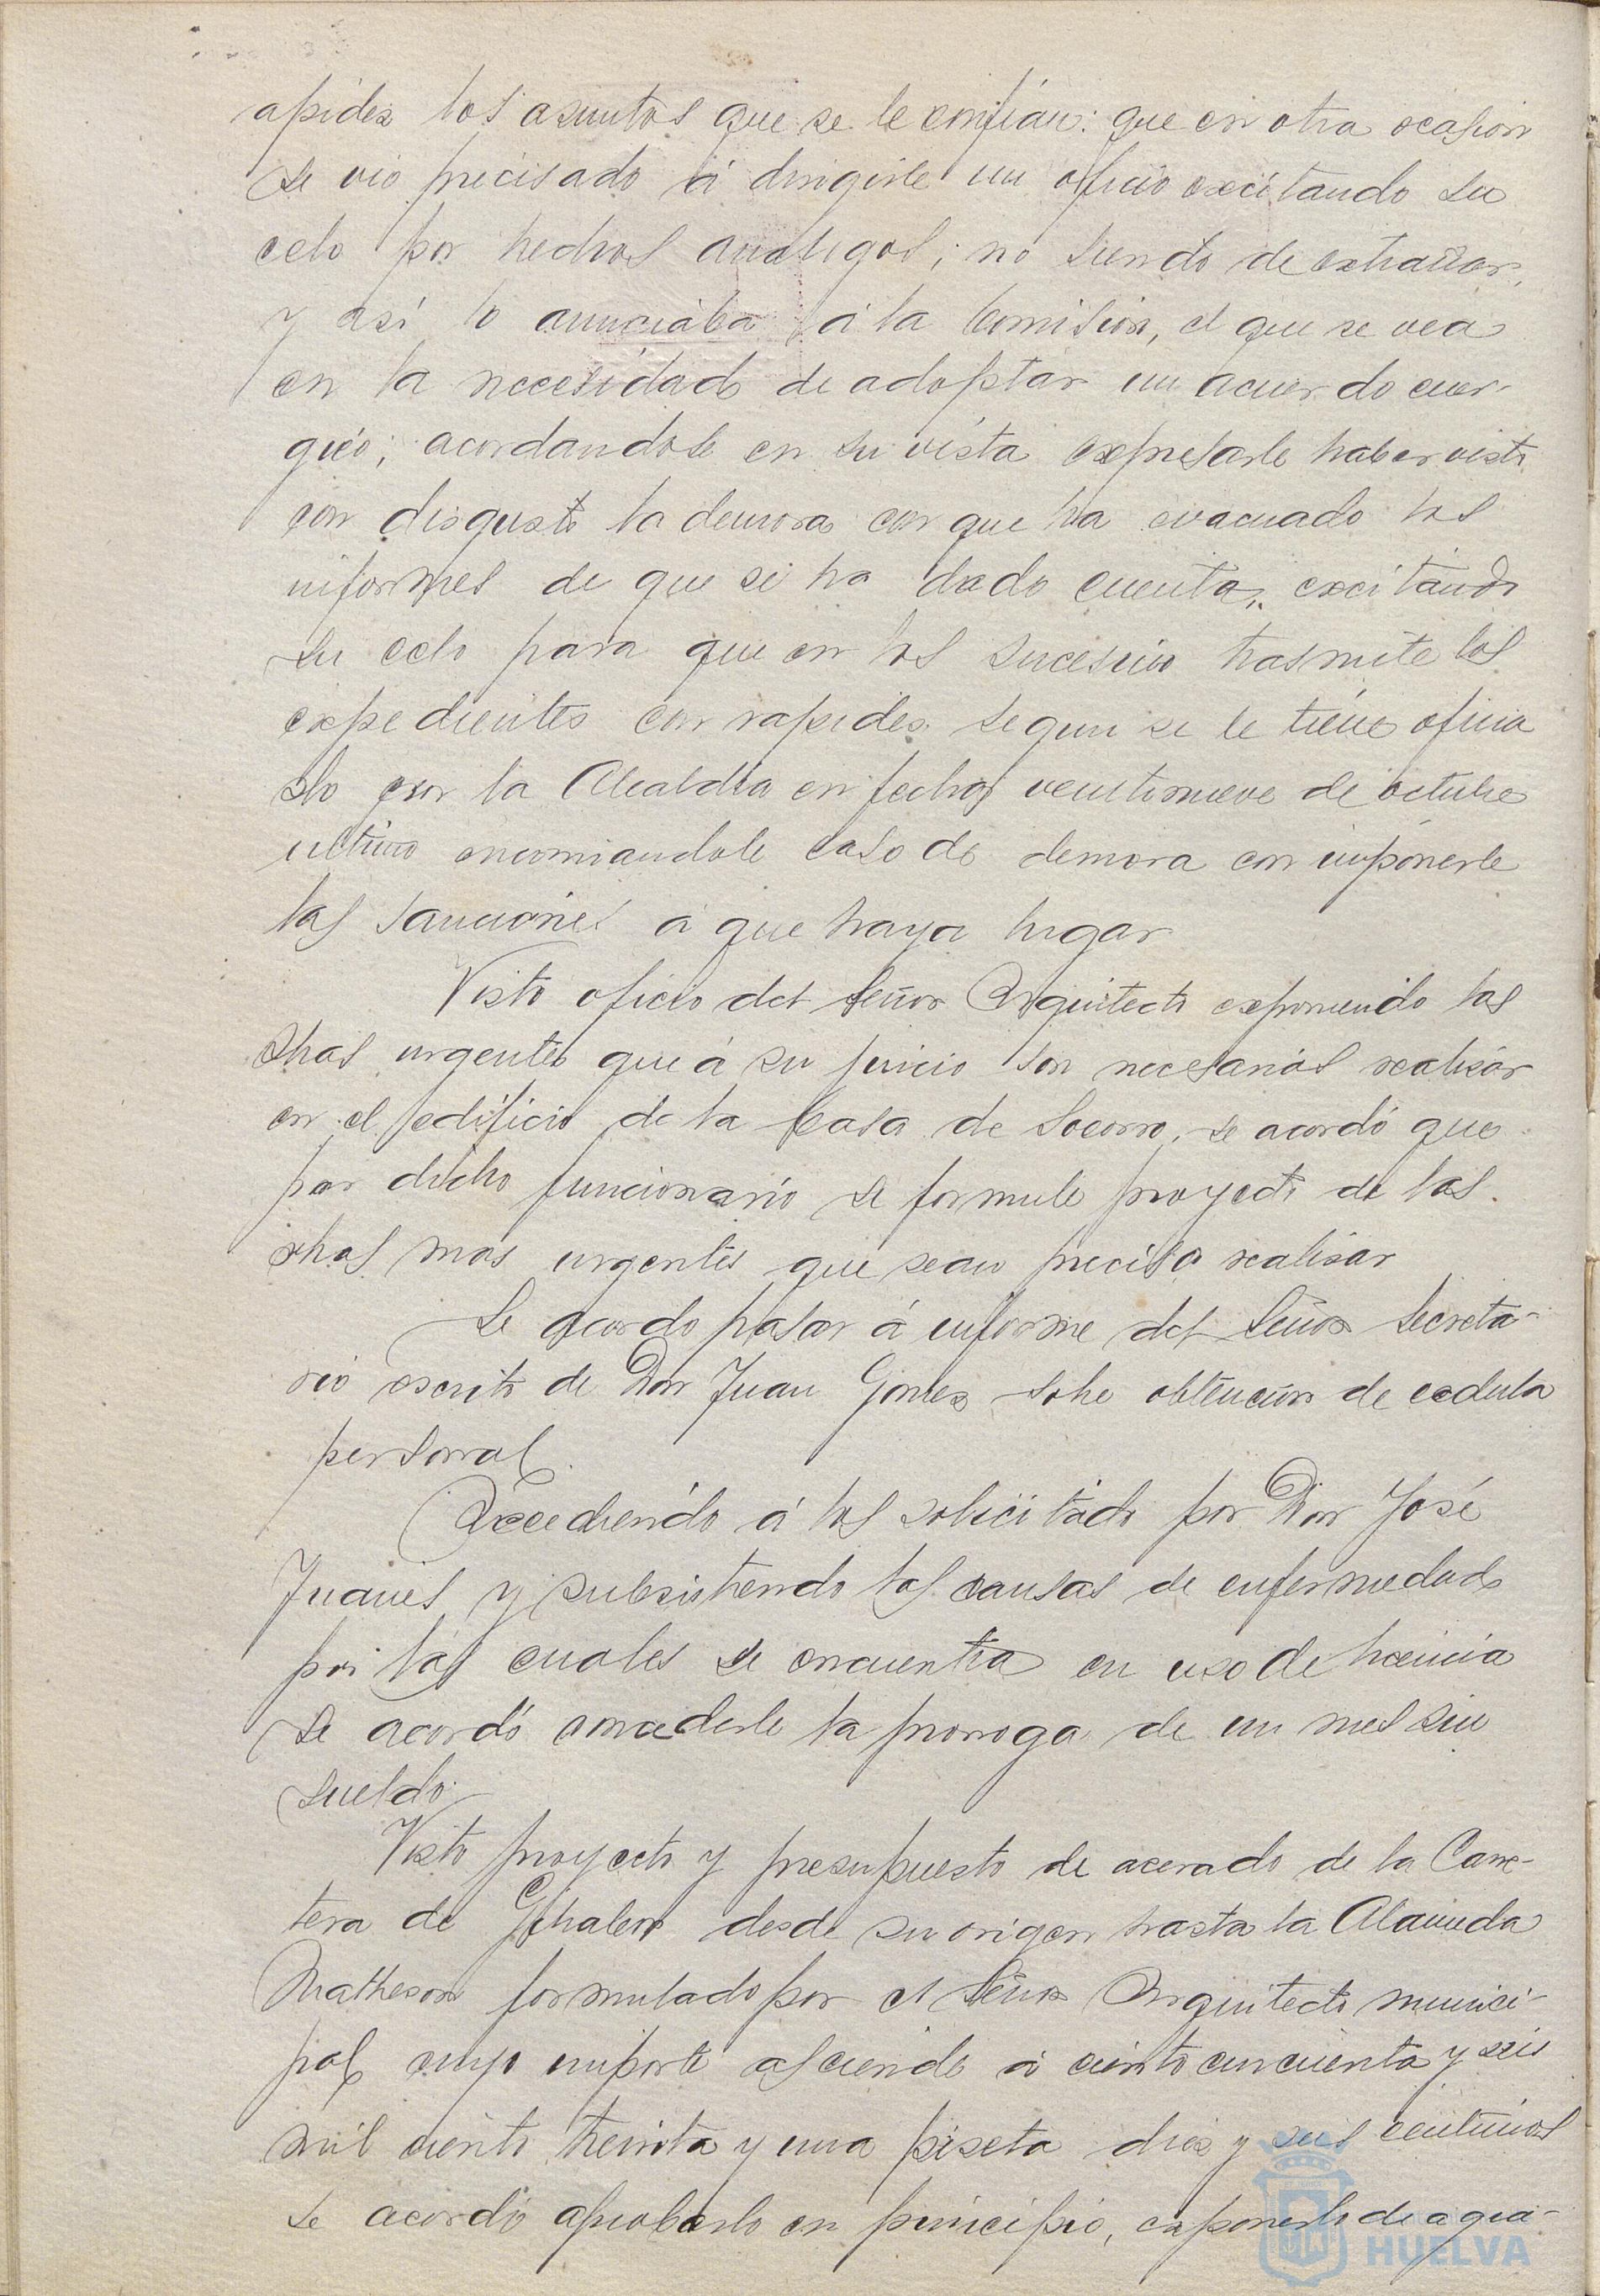 apidez los asuntos que se le confian: que en otra ocasion
se vió precisado á dirigirle un oficio excitando su
celo por hechos analogos; no siendo de extrañar,
y así lo anunciaba á la Comision, el que se vea
en la necesidad de adoptar un acuerdo ener-
gico; acordandose en su vista expresarle haber visto
con disgusto la demora con que ha evacuado los
informes de que se ha dado cuenta, excitando
su celo para que en los sucesivo trasmite los
expedientes con rapidez segun se le tiene oficia
do por la Alcaldia en fecha veintinueve de octubre
ultimo conminandole caso de demora con imponerle
las sanciones á que haya lugar
Visto oficio del Señor Arquitecto exponiendo las
obras urgentes que á su juicio son necesarias realizar
en el edificio de la Casa de Socorro, se acordó que
por dicho funcionario se formule proyecto de las
obras mas urgentes que sean preciso realizar
Se acordo pasar á informe del Señor Secreta-
rio escrito de Don Juan Gomez sobre obtencion de cedula
personal.
Accediendo á los solicitado por Don José
Juanes y subsistiendo las causas de enfermedad
por las cuales se encuentra en uso de licencia
se acordó concederle la prorroga de un mes sin
sueldo.
Visto proyecto y presupuesto de acerado de la Carre-
tera de Gibraleon desde su origen hasta la Alameda
Matheson formulado por el Señor Arquitecto munici-
pal cuyo importe asciende á ciento cincuenta y seis
mil ciento treinta y una peseta diez y seis centimos
se acordó aprobarlo en principio, exponerlo de agra-
HUELVA